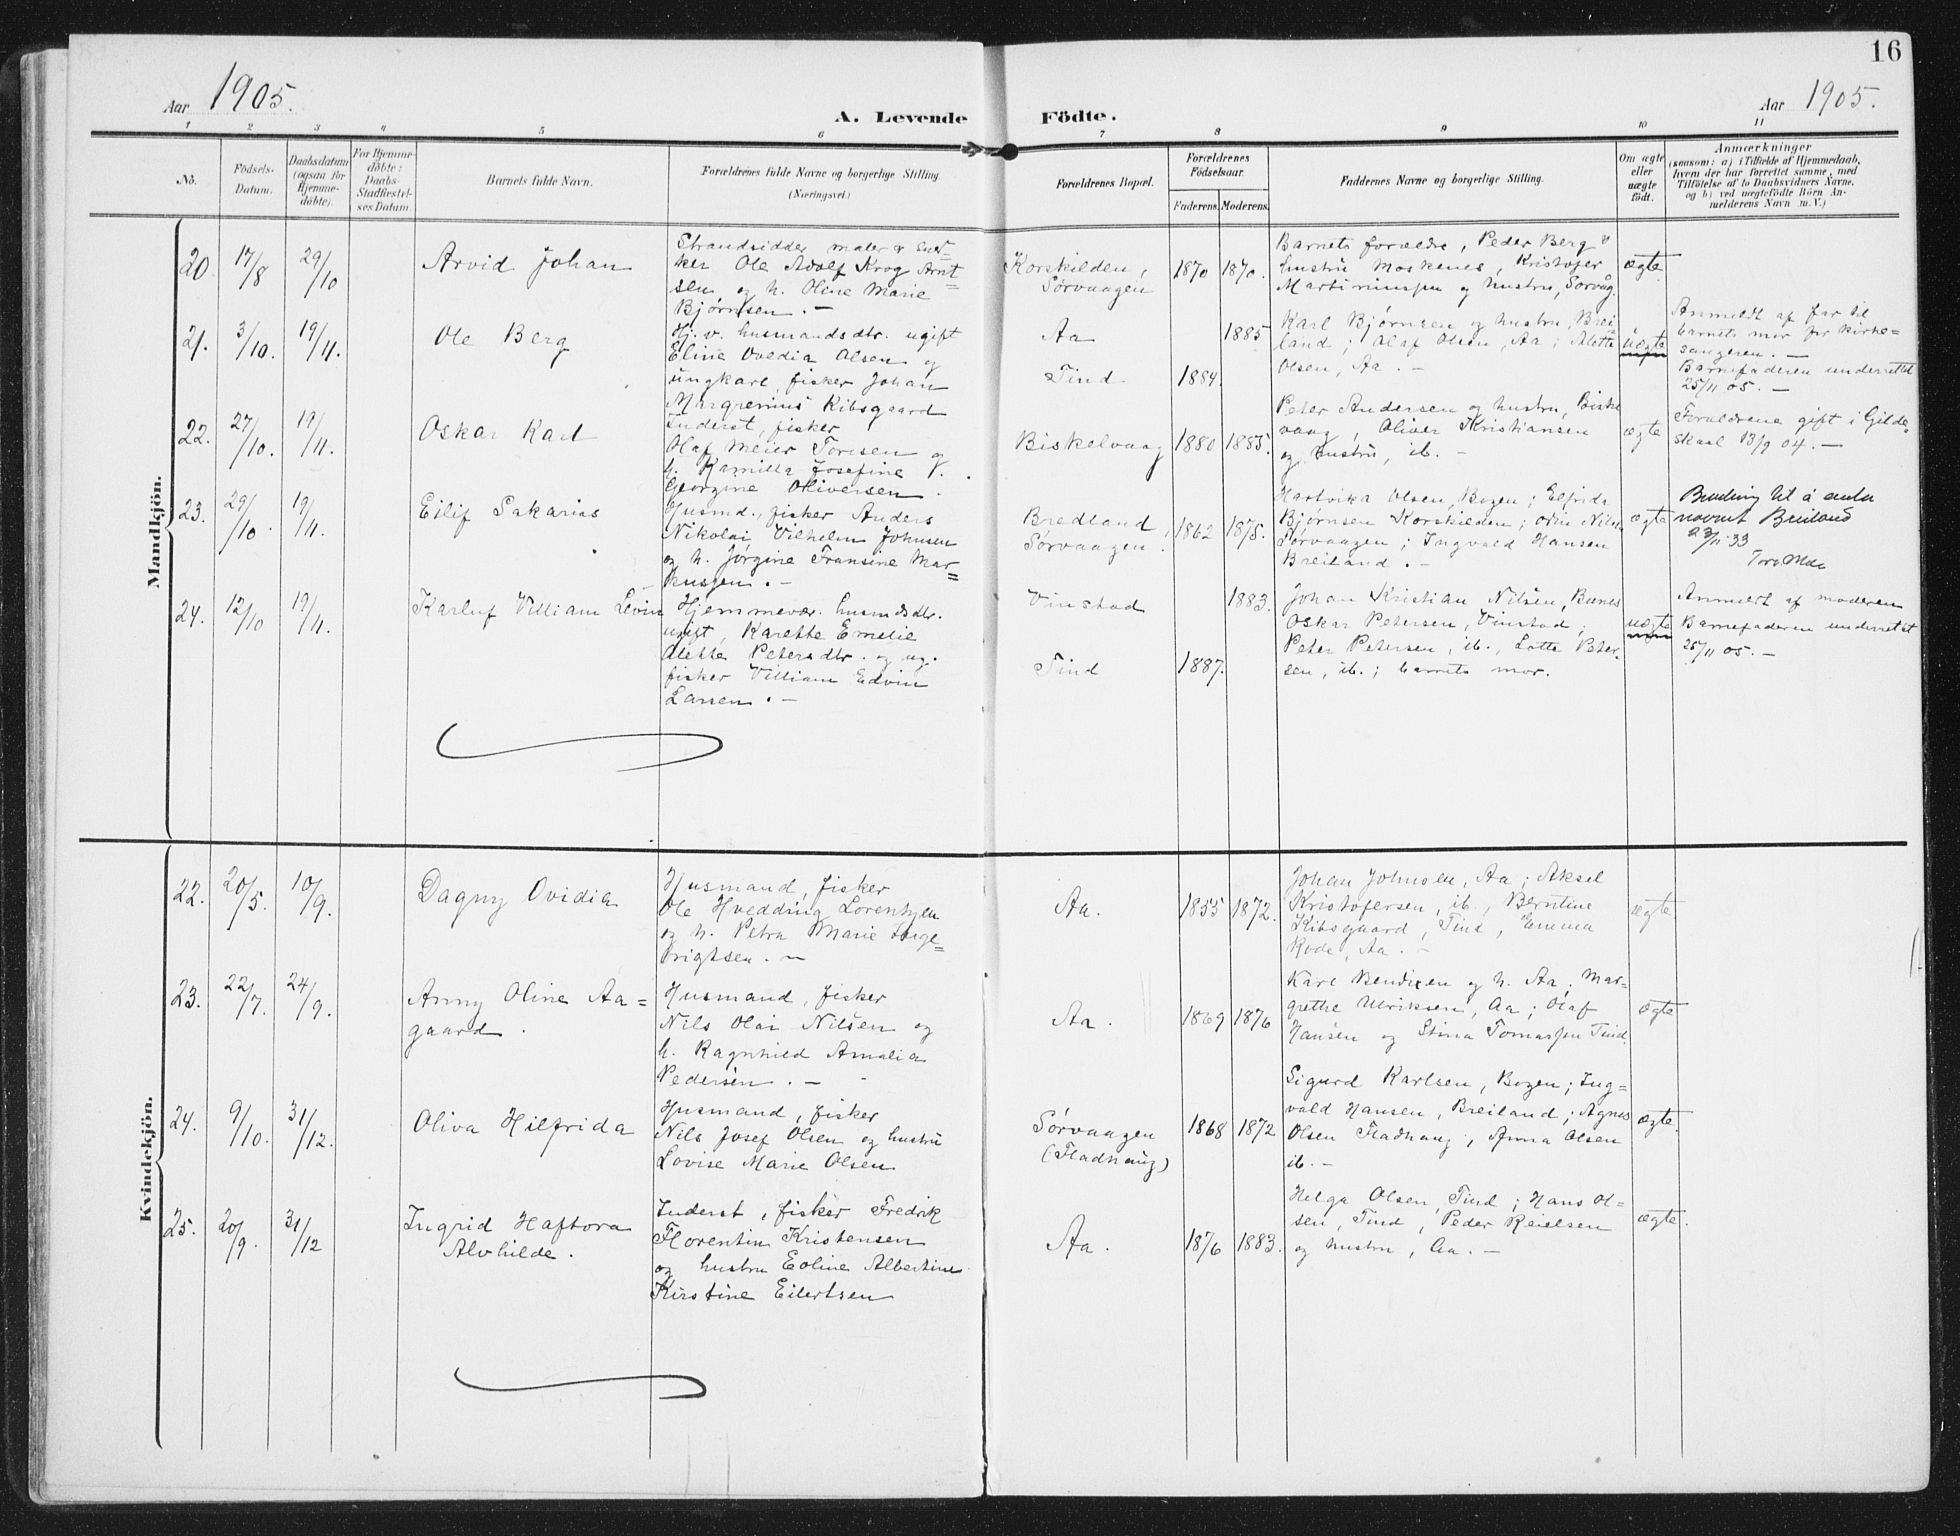 16
Aar 1905.
A. Levende Födte.
Aar 1905.
1 2 3 4 5 6 7 8 9 10 11
No.
Födsels-
Datum.
Daabsdatum
(ogsaa for
Hjemme-
döbte).
For Hjemme-
döbte:
Daabs-
Stadfæstel-
ses Datum
Barnets fulde Navn.
Forældrenes fulde Navne og borgerlige Stilling.
(Næringsvei.)
Forældrenes Bopæl.
Forældrenes
Födselsaar.
Faderens. Moderens.
Faddernes Navne og borgerlige Stilling.
Om ægte
eller
uægte
födt.
Anmærkninger
(saasom: a) i Tilfælde af Hjemmedaab,
hvem der har forrettet samme, med
Tilföielse af to Daabsvidners Navne,
og b) ved uægtefödte Börn An-
melderens Navn m. V.)
Mandkjön.
20.
17/8
29/10
Arvid Johan
Strandsidder, maler & sned-
ker Ole Adolf Krog Arnt
sen og h. Oline Marie
Bjørnsen. —
Korskilden,
Sørvaagen
1870 1870.
Barnets forældre, Peder Berg &
hustru Moskenes, Kristofer
Martinussen og hustru, Sørvåg.
ægte
21.
3/10.
19/11.
Ole Berg
Hj. v. husmandsdtr. ugift
Eline Ovedia Olsen og
ungkarl, fisker Johan
Margrenius Kibsgaard
Aa
Tind
1885
1884.
Karl Bjørnsen og hustru, Brei-
land; Olaf Olsen, Aa; Alette
Olsen, Aa. —
uægte
Anmeldt af far til
barnets mor for kirke-
sangeren. —
Barnefaderen underrettet
25/11 05. —
22.
27/10.
19/11.
Oskar Karl
Inderst, fisker
Olaf Meier Toresen og
h. Kamilla Josefine
Georgine Oliversen.
Biskelvaag
1880 1885.
Peter Andersen og hustru, Biskel
vaag, Oliver Kristiansen
og hustru, ib. —
ægte
Forældrene gift i Gilde-
skaal 13/9 04. —
23.
29/10
19/11.
Eilif Sakarias
Husmd., fisker Anders
Nikolai Vilhelm Johnsen
og h. Jørgine Fransine Mar-
kussen. —
Bredland,
Sørvaagen.
1862 1875.
Hartvika Olsen, Bogen; Elfrida
Bjørnsen Korskilden; Odin Nilsen
Sørvaagen; Ingvald Hansen
Breiland. —
ægte
til å anta
navnet Breiland
23/11 33
24.
12/10
19/11.
Karluf Villiam Levin
Hjemmevær. husmdsdtr.
ugift, Karette Emelie
Alette Petersdtr. og ug.
fisker Villiam Edvin
Larsen. —
Vinstad
Tind
1883.
1887.
Johan Kristian Nilsen, Bunes
Oskar Petersen, Vinstad;
Peter Petersen, ib., Lotte Peter-
sen, ib.; barnets mor.
uægte
Anmeldt af moderen
Barnefaderen underrettet
25/11 05. —
Kvindekjön.
22.
20/5.
10/9.
Dagny Ovidia
Husmand, fisker
Ole Hvedding Lorentzen
og h. Petra Marie Inge-
brigtsen. —
Aa.
1855 1872.
Johan Johnsen, Aa; Aksel
Kristofersen, ib., Berntine
Kibsgaard, Tind, Emma
Rode, Aa. —
ægte
23.
22/7.
24/9.
Anny Oline Aa-
gaard.
Husmand, fisker
Nils Olai Nilsen og
h. Ragnhild Amalia
Pedersen. —
Aa.
1869 1876
Karl Bendixen og h. Aa; Mar-
grethe Ulriksen, Aa; Olaf
Hansen og Stina Tomassen Tind.
ægte
24.
9/10.
31/12.
Oliva Hilfrida
Husmand, fisker
Nils Josef Olsen og hustru
Lovise Marie Olsen
Sørvaagen
(Fladhaug)
1868 1872
Sigurd Karlsen, Bogen; Ing-
vald Hansen, Breiland; Agnes
Olsen Fladhaug, Anna Olsen
ib. —
ægte.
25.
20/9.
31/12
Ingrid Haftora
Alvhilde.
Inderst, fisker Fredrik
Florentin Kristensen
og hustru Eoline Albertine
Kirstine Eilertsen
Aa.
1876 1883.
Helga Olsen, Tind; Hans Ol-
sen, Tind, Peder Reielsen
og hustru, Aa. —
ægte.